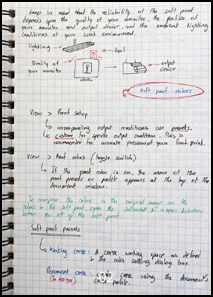 keep in mind that the reliability of the soft proof
depends upon the quality of your monitor, the profiles of
your monitor and output device and the ambient lighting
conditions of your work environment.
lighting
Quality of
your monitor
output
device
Soft proof colors
View > Proof setup
incorporating output conditions as presets.
custom for specific output conditions. This is
recommended for accurate preview of your final print.
View > Proof colors (toggle switch)
If the proof color is on, the name of the
proof presets or profile appears at the top of the
document window.
compare the colors in the original image
Soft proof presets
Working CMYK : A CMYK working space as defined
in the color setting dialog box.
Document CMYK : CMYK using the document's
(InDesign) CMYK profile.